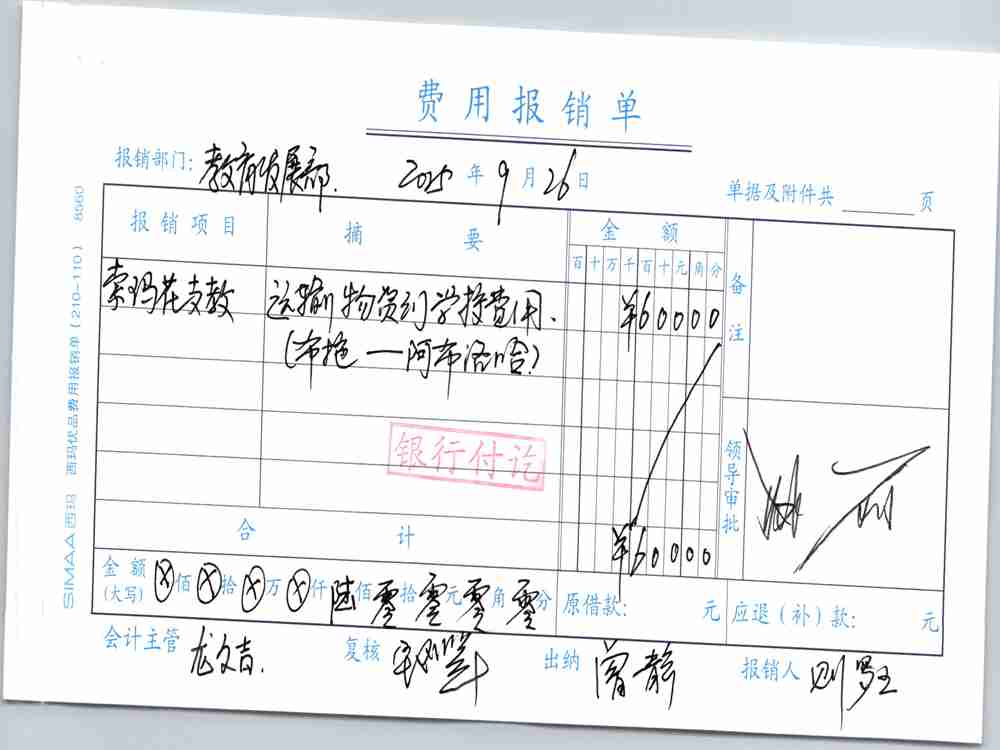 费用报销单
报销部门：教育发展部. 2025年9月26日 单据及附件共 页
报销项目 摘要 金额 备注
百十万千百十元角分
索玛花支教 运输物资到学校费用. ¥60000
(布拖—阿布洛哈)
银行付讫
领导审批
合计 ¥60000
金额(大写) ⊗佰⊗拾⊗万⊗仟陆佰零拾零元零角零分 原借款: 元 应退(补)款: 元
会计主管 龙文吉. 复核 出纳 曾静 报销人
SIMAA西玛 西玛优品费用报销单(210-110) 8960